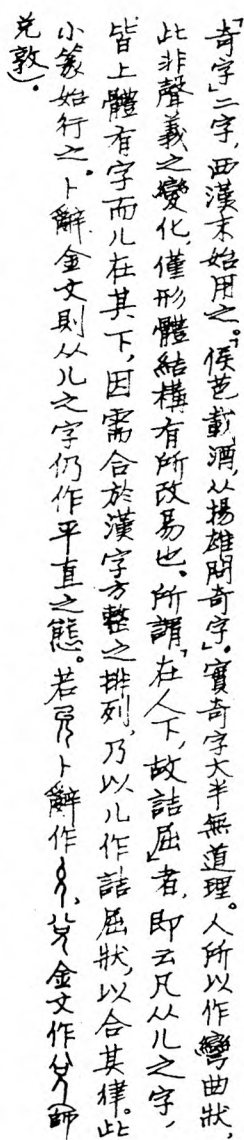 「奇字」二字，西漢末始用之。「侯芭載酒，从揚雄問奇字」。實奇字大半無道理。人所以作彎曲狀，
此非聲義之變化，僅形體結構有所改易也。所謂「在人下，故詰屈」者，即云凡从儿之字，
皆上體有字而儿在其下，因需合於漢字方整之排列，乃以儿作詰屈狀，以合其律。此
小篆始行之。卜辭金文則从儿之字仍作平直之態。若卜辭作，金文作（師
兌敦）。